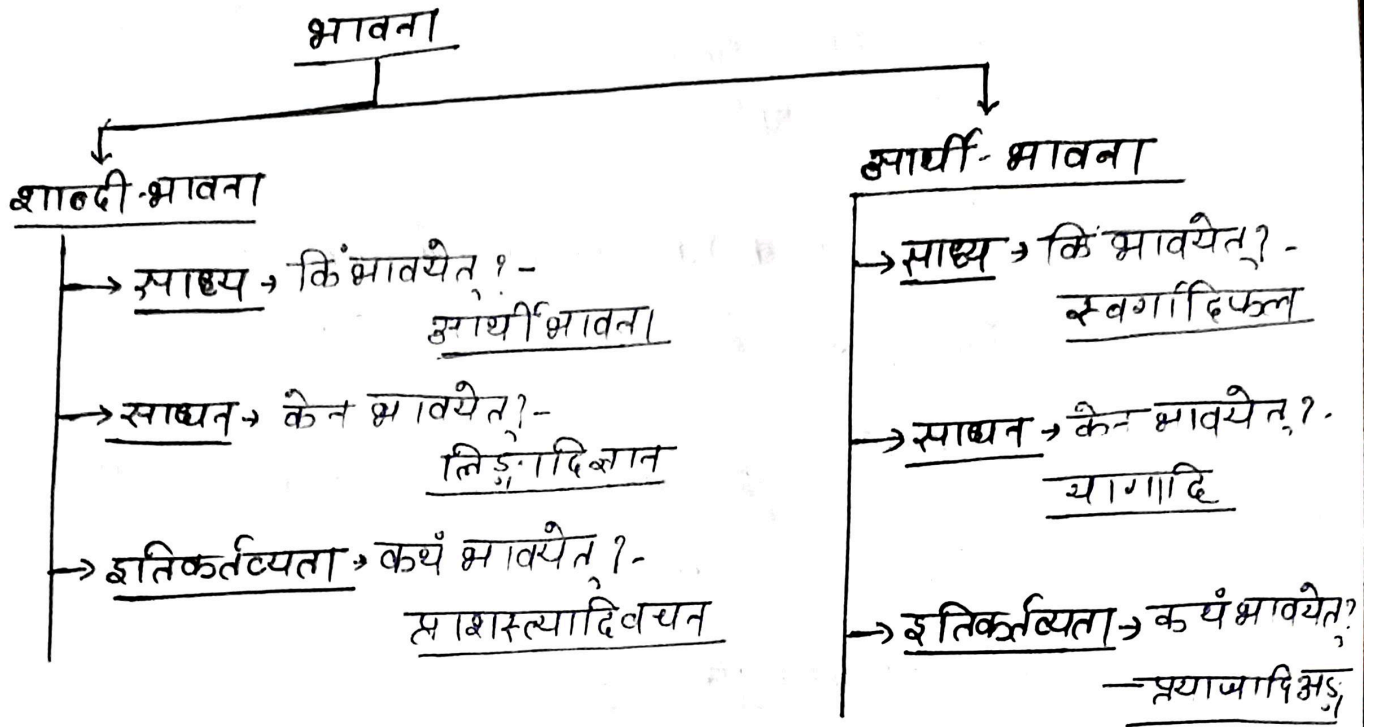 भावना
शाब्दी-भावना
→ साध्य → किं भावयेत् ? -
आर्थीभावना
→ साधन → केन भावयेत् ? -
लिङ्गादिज्ञान
→ इतिकर्तव्यता → कथं भावयेत् ? -
प्राशस्त्यादिवचन
आर्थी-भावना
→ साध्य → किं भावयेत् ? -
स्वर्गादिफल
→ साधन → केन भावयेत् ? -
यागादि
→ इतिकर्तव्यता → कथं भावयेत् ?
- प्रयाजादिअङ्ग